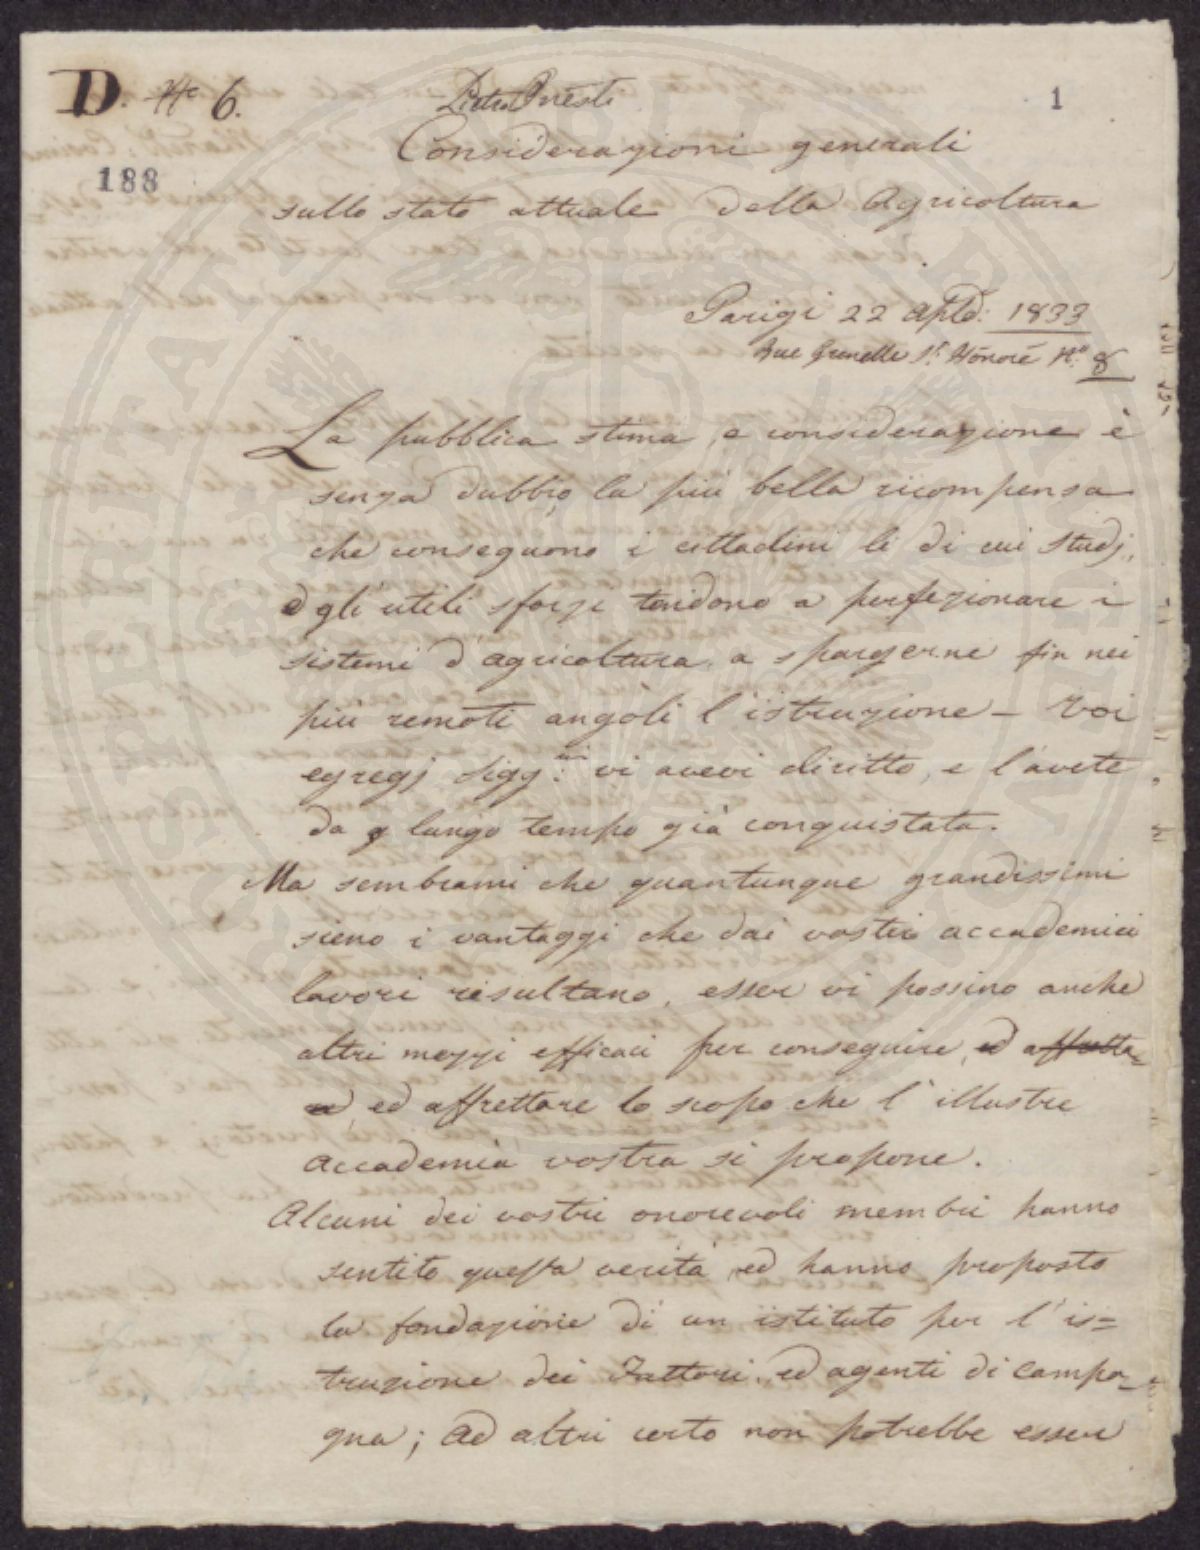 D. N.o 6.
Pietro Onesti
1
Considerazioni generali
188
sullo stato attuale della Agricoltura
Parigi 22 Aple: 1833
Rue Grenelle St. Honoré N.o 8
La pubblica stima, e considerazione è
senza dubbio la più bella ricompensa
che conseguono i cittadini li di cui studj,
e gli utili sforzi tendono a perfezionare i
sistemi d'agricoltura, a spargerne fin nei
più remoti angoli l'istruzione – Voi
egregj Sigg.ri vi avevi diritto, e l'avete
da lungo tempo già conquistata.
Ma sembrami che quantunque grandissimi
sieno i vantaggi che dai vostri accademici
lavori risultano, esser vi possino anche
altri mezzi efficaci per conseguire, ed affretta=
ed ed affrettare lo scopo che l'illustre
Accademia vostra si propone.
Alcuni dei vostri onorevoli membri hanno
sentito questa verità, ed hanno proposto
la fondazione di un istituto per l'is=
truzione dei Fattori, ed agenti di campa=
gna; Ad altri certo non potrebbe esser